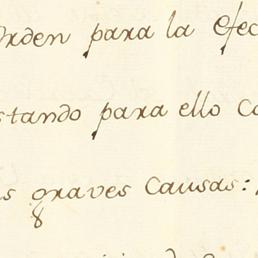 orden para la efec
stando para ello co
s graves causas: